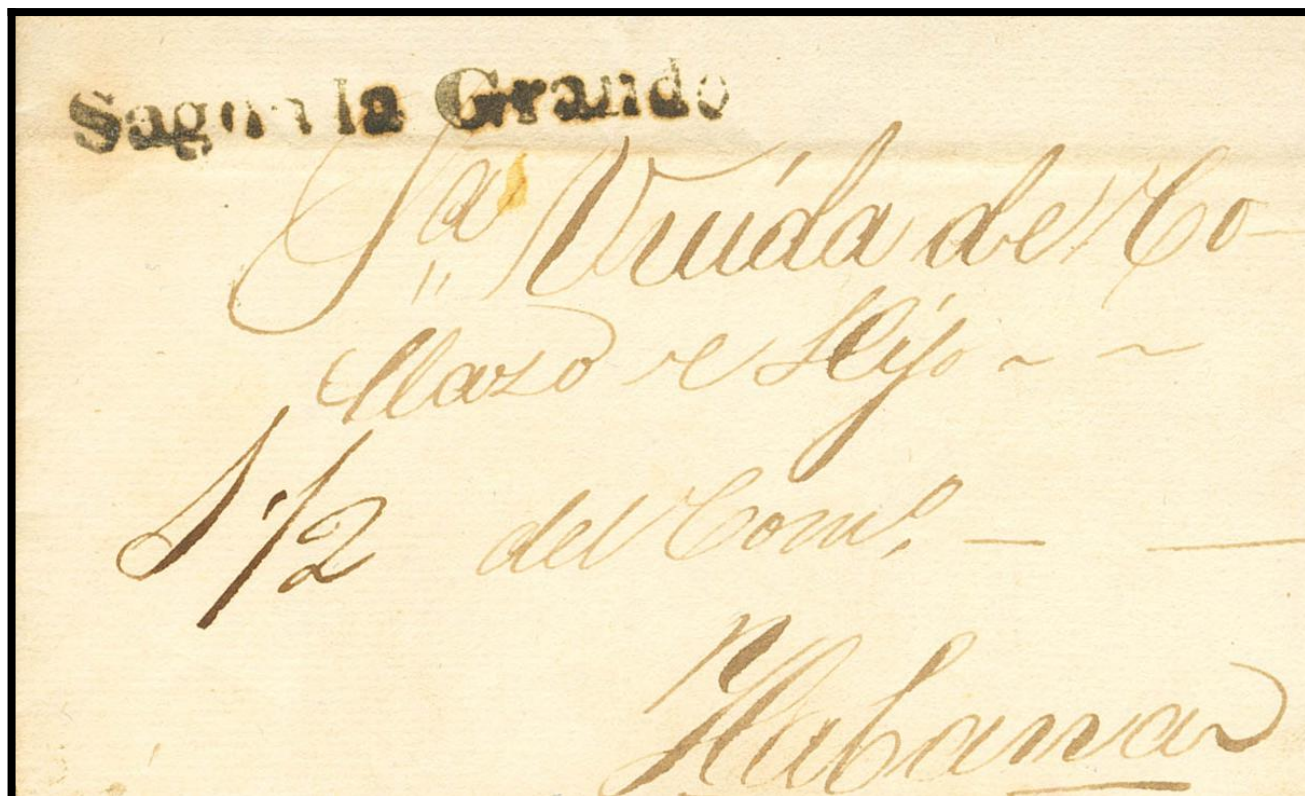 Sagua la Grande
Sª Viuda de Co-
llazo e Hijo ~ ~
S 1/2 del Comº. — —
Habana